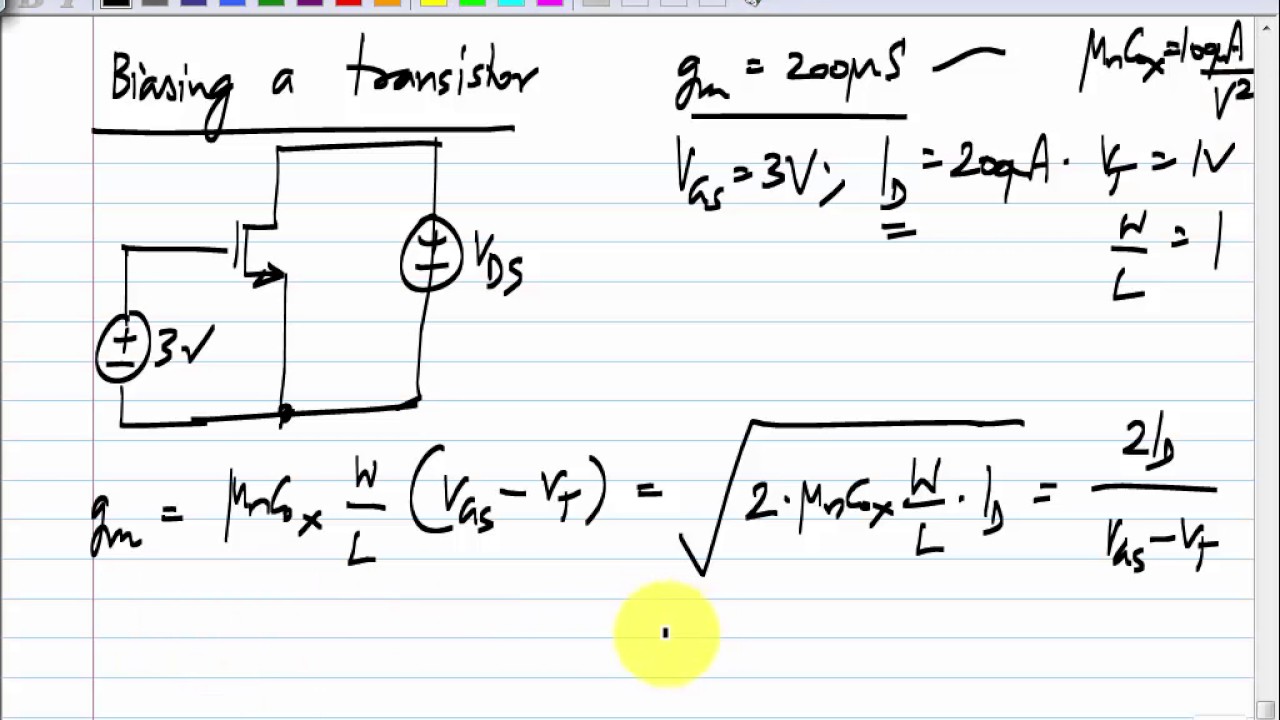 Biasing a transistor
gm = 200µS
µnCox = 100µA/V²
VGS = 3V; ID = 200µA. VT = 1V
W/L = 1
VDS
+
3V
gm = µnCox W/L (VGS - VT) = √(2·µnCox W/L · ID) = 2ID/(VGS - VT)